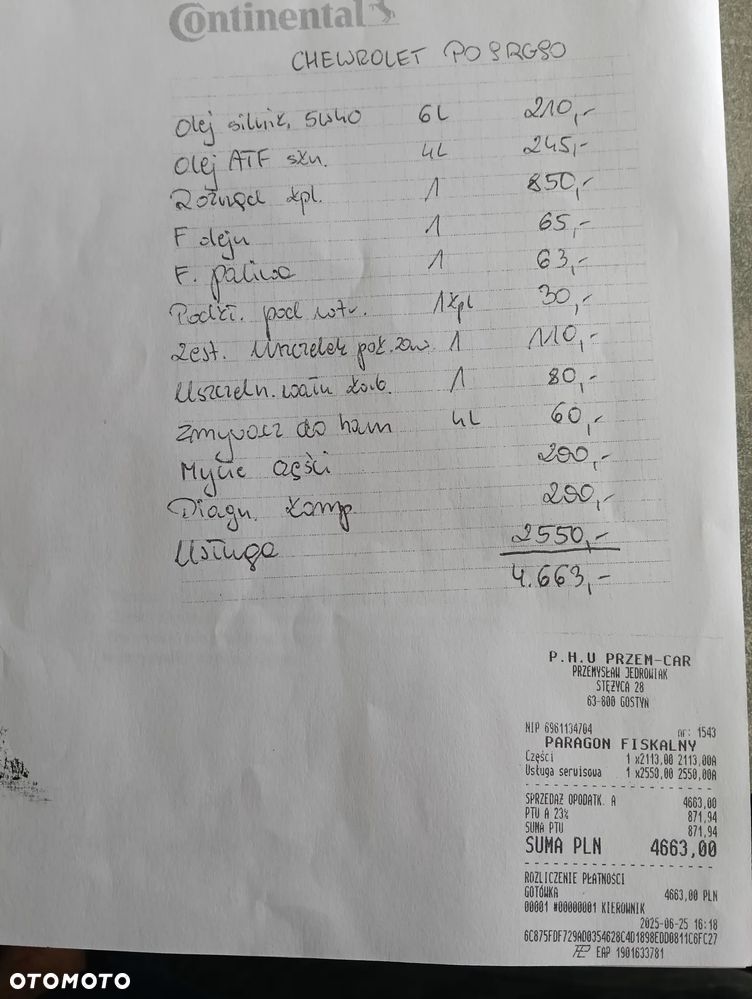 Continental
CHEWROLET PO 9RG90
Olej silnik. 5W40 6L 210,-
Olej ATF skn. 4L 245,-
Rozrząd kpl. 1 850,-
F oleju 1 65,-
F. paliwa 1 63,-
Podkł. pod wtr. 1 kpl 30,-
Zest. Uszczelek pok. zaw. 1 110,-
Uszczeln. wału korb. 1 80,-
Zmywacz do ham 4L 60,-
Mycie części 200,-
Diagn. komp 200,-
Usługa 2550,-
4.663,-
P.H.U PRZEM-CAR
PRZEMYSŁAW JEDROWIAK
STĘŻYCA 28
63-800 GOSTYŃ
NIP 6961134704 nr: 1543
PARAGON FISKALNY
Części 1 x2113,00 2113,00A
Usługa serwisowa 1 x2550,00 2550,00A
SPRZEDAŻ OPODATK. A 4663,00
PTU A 23% 871,94
SUMA PTU 871,94
SUMA PLN 4663,00
ROZLICZENIE PŁATNOŚCI
GOTÓWKA 4663,00 PLN
00001 #00000001 KIEROWNIK
2025-06-25 16:18
6C875FDF729AD0354628C4D1898EDD0811C6FC27
EAP 1901633781
OTOMOTO